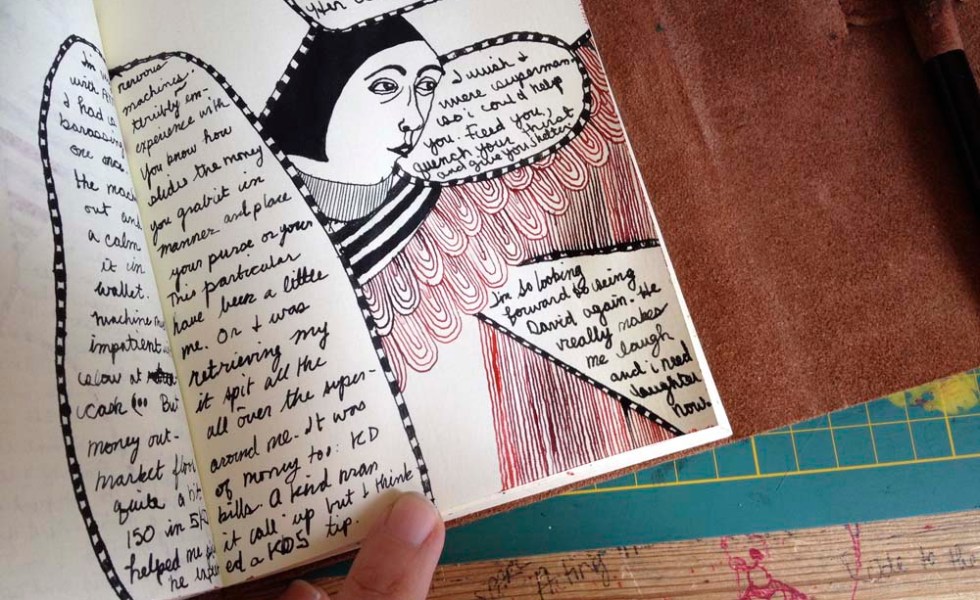 I'm nervous
with machines.
I had a terribly em-
barassing experience with
one once. You know how
the slides the money
out and you grab it in
a calm manner and place
it in your purse or your
wallet. This particular
machine have been a little
impatient me. Or I was
slow at retrieving my
cash But it spit all the
money out- all over the super-
market floor around me. It was
quite a bit of money too: KD
150 in bills. A kind man
helped me it call up but I think
he ed a KD5 tip.
I wish I
were superman
so i could help
you. Feed you,
quench your thirst
and give you shelter
I'm so looking
forward to seeing
David again. He
really makes
me laugh
and i need
laughter
now.